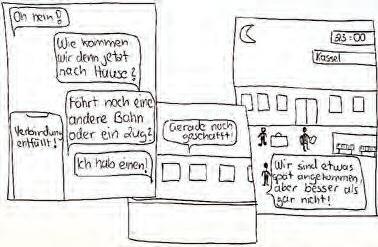 Oh nein!
Wie kommen
wir denn jetzt
nach Hause?
Fährt noch eine
andere Bahn
oder ein Zug?
Verbindung
entfällt!
Ich hab einen!
Gerade noch
geschafft!
23:00
Kassel
Wir sind etwas
spät angekommen,
aber besser als
gar nicht!